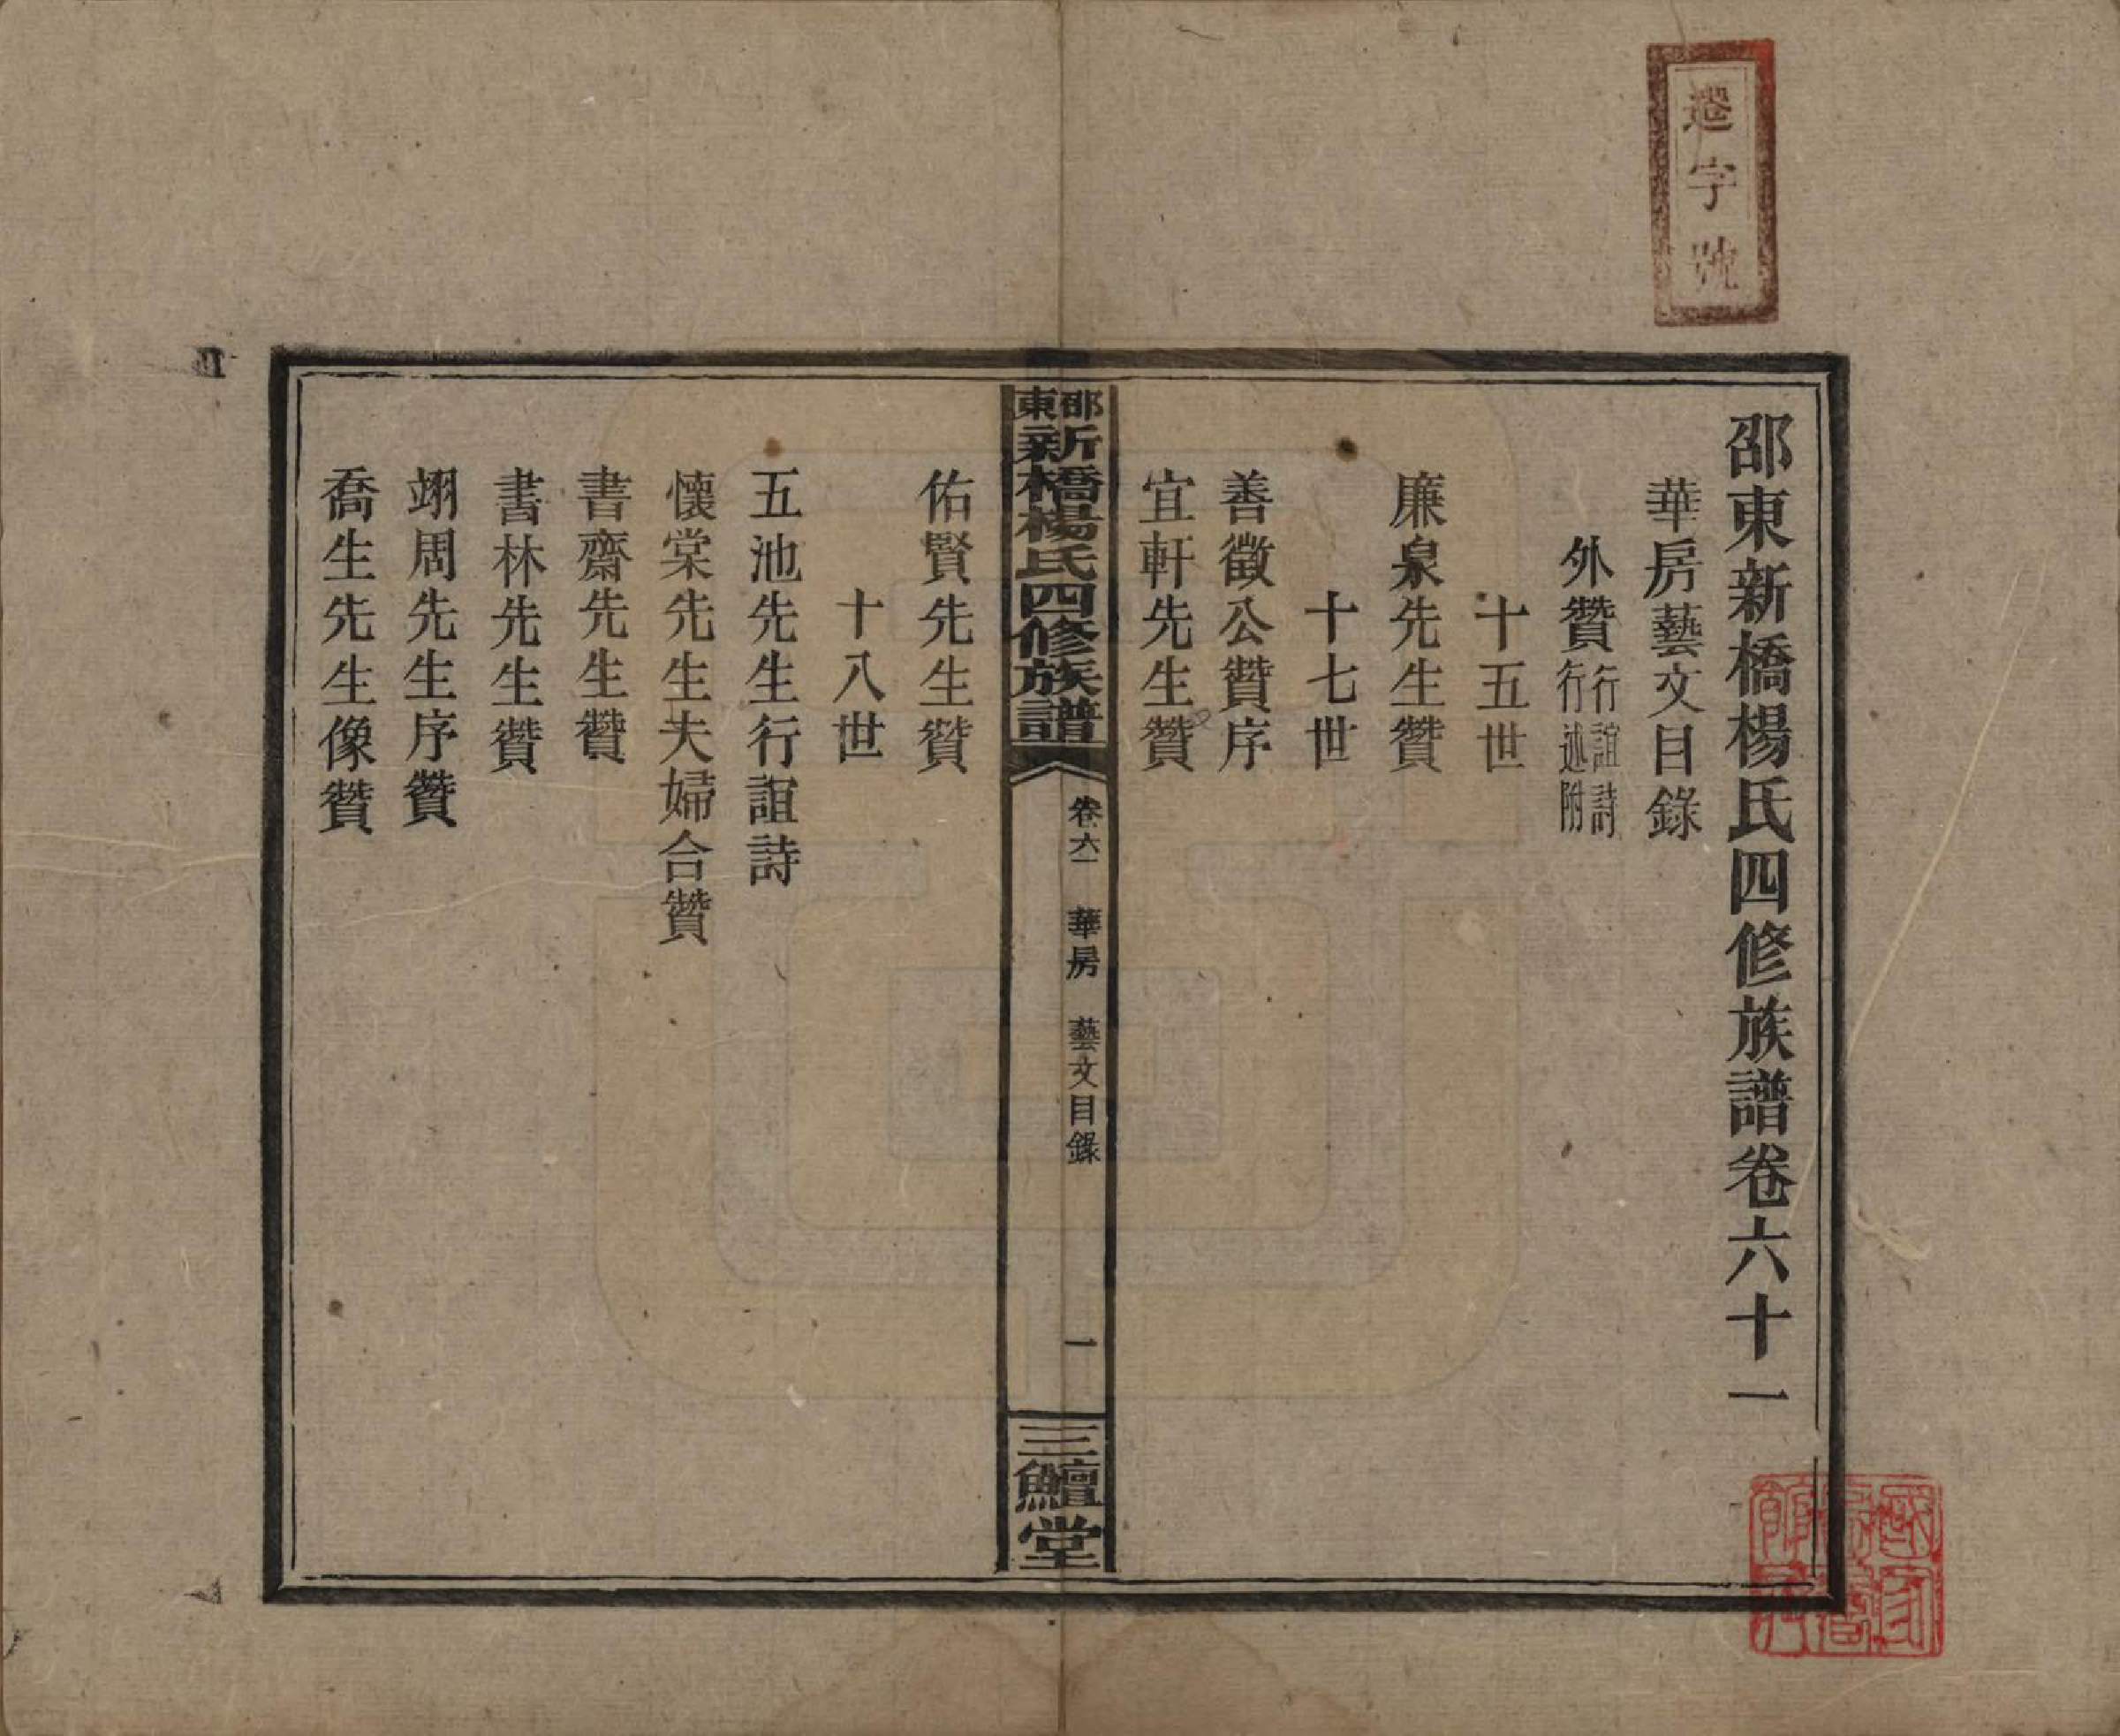 字號
邵東新橋楊氏四修族譜卷六十一
華房藝文目錄
外贊行誼詩行述附
十五世
廉泉先生贊
十七世
善徵公贊序
宜軒先生贊
邵東新橋楊氏四修族譜
卷六一 華房 藝文目錄 一
三鱣堂
佑賢先生贊
十八世
五池先生行誼詩
懷棠先生夫婦合贊
書齋先生贊
書林先生贊
翊周先生序贊
喬生先生像贊